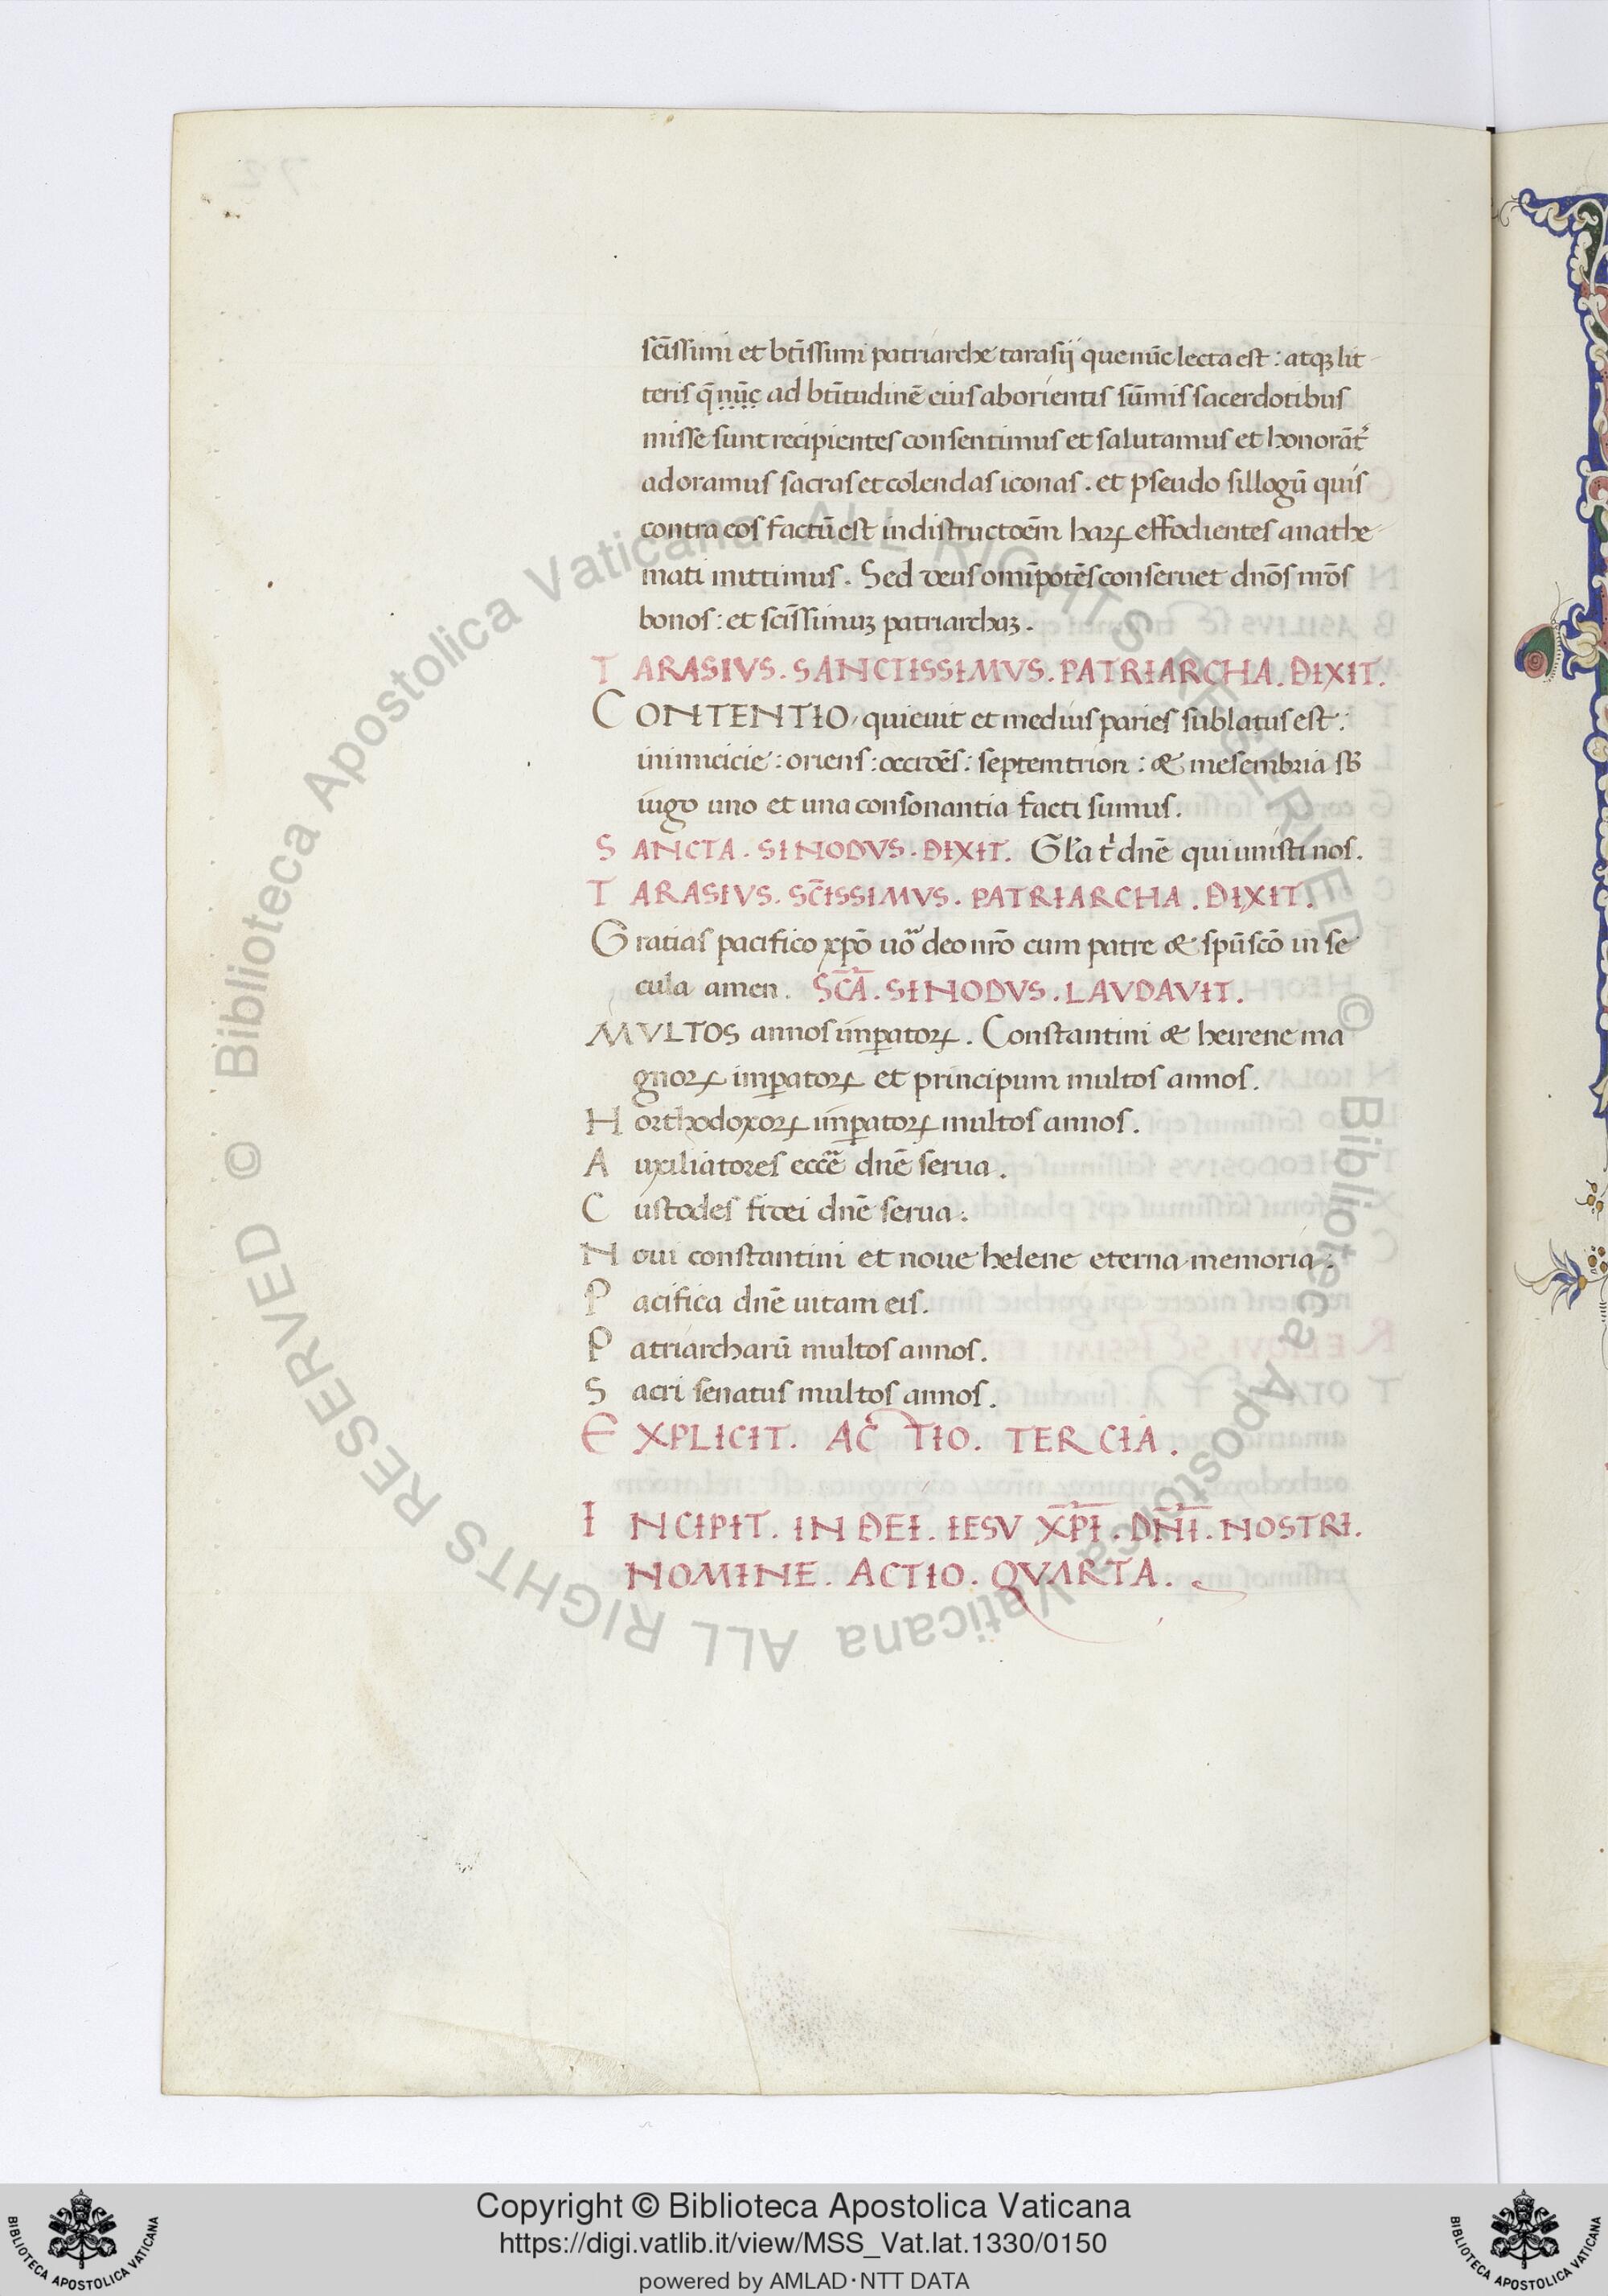 scīssimi et btīssimi patriarche tarasij que nūc lecta est : atqꝫ lit-
teris q̄ nūc ad btītudinē eius aborientis sūmis sacerdotibus
misse sunt recipientes consentimus et salutamus et honorāt᷑
adoramus sacras et colendas iconas . et pseudo sillogū quis
contra eos factū est in distructoēm haꝝ effodientes anathe-
mati mittimus . Sed deus omīpotēs conseruet dnōs nrōs
bonos : et scīssimuꝫ patriarchaꝫ .
TARASIVS . SANCTISSIMVS . PATRIARCHA . DIXIT .
CONTENTIO quieuit et medius paries sublatus est :
inimicicie : oriens : occidēs : septemtrion : & mesembria sƀ
iugo uno et una consonantia facti sumus .
SANCTA . SINODVS . DIXIT . Gła t᷑ dnē qui unisti nos .
TARASIVS . SC̄ISSIMVS . PATRIARCHA . DIXIT .
Gratias pacifico xpō uo deo nrō cum patre & spū scō in se
cula amen . SC̄A . SINODVS . LAVDAVIT .
MVLTOS annos imꝑatoꝝ . Constantini & heirene ma
gnoꝝ imꝑatoꝝ et principum multos annos .
Horthodoxoꝝ imꝑatoꝝ multos annos .
Auxiliatores eccē dnē serua .
Custodes fidei dnē serua :
Noui constantini et noue helene eterna memoria :
Pacifica dnē uitam eis .
Patriarcharū multos annos .
Sacri senatus multos annos .
EXPLICIT . ACTIO . TERCIA .
INCIPIT . IN DEI . IESV XP̄I . DN̄I . NOSTRI .
NOMINE . ACTIO . QVARTA .
© Biblioteca Apostolica Vaticana ALL RIGHTS RESERVED © Biblioteca Apostolica Vaticana ALL RIGHTS RESERVED
Copyright © Biblioteca Apostolica Vaticana
https://digi.vatlib.it/view/MSS_Vat.lat.1330/0150
powered by AMLAD·NTT DATA
BIBLIOTECA APOSTOLICA VATICANA
BIBLIOTECA APOSTOLICA VATICANA